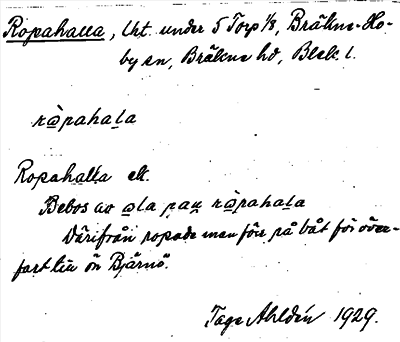 Ropahalla, lht. under 5 Torp 1/8, Bräkne-Ho-
by sn, Bräkne hd, Blek. l.
ròpahala
Ropahalla elt.
Bebos av ola pau ròpahala
Därifrån ropade man förr på båt för över-
fart till ön Björnö.
Tage Ahldén 1929.